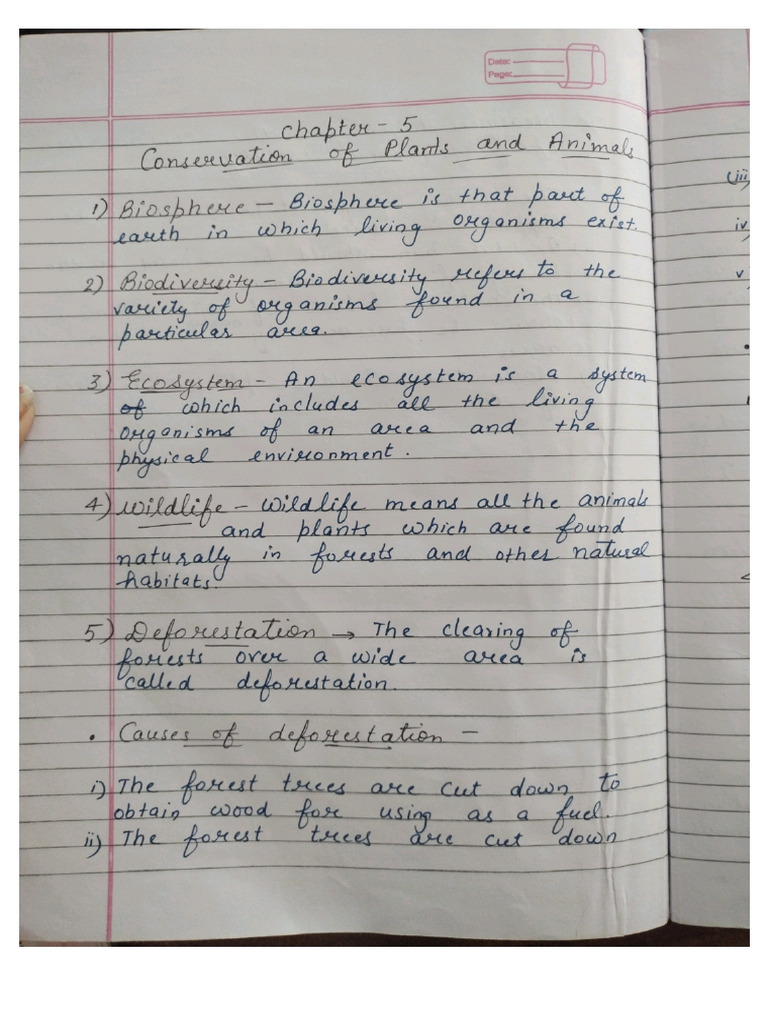 Date:
Page:
Chapter - 5
Conservation of Plants and Animals
1) Biosphere - Biosphere is that part of
earth in which living organisms exist.
2) Biodiversity - Biodiversity refers to the
variety of organisms found in a
particular area.
3) Ecosystem - An ecosystem is a system
of which includes all the living
organisms of an area and the
physical environment.
4) Wildlife - Wildlife means all the animals
and plants which are found
naturally in forests and other natural
habitats.
5) Deforestation → The clearing of
forests over a wide area is
called deforestation.
• Causes of deforestation -
i) The forest trees are cut down to
obtain wood for using as a fuel.
ii) The forest trees are cut down
iii)
iv
v